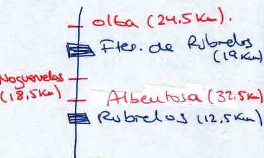 olba (24,5km).
Ftes. de Rubielos
(19km)
Noguerelas
(18,5km)
Albentosa (32,5km)
Rubielos (12,5km)